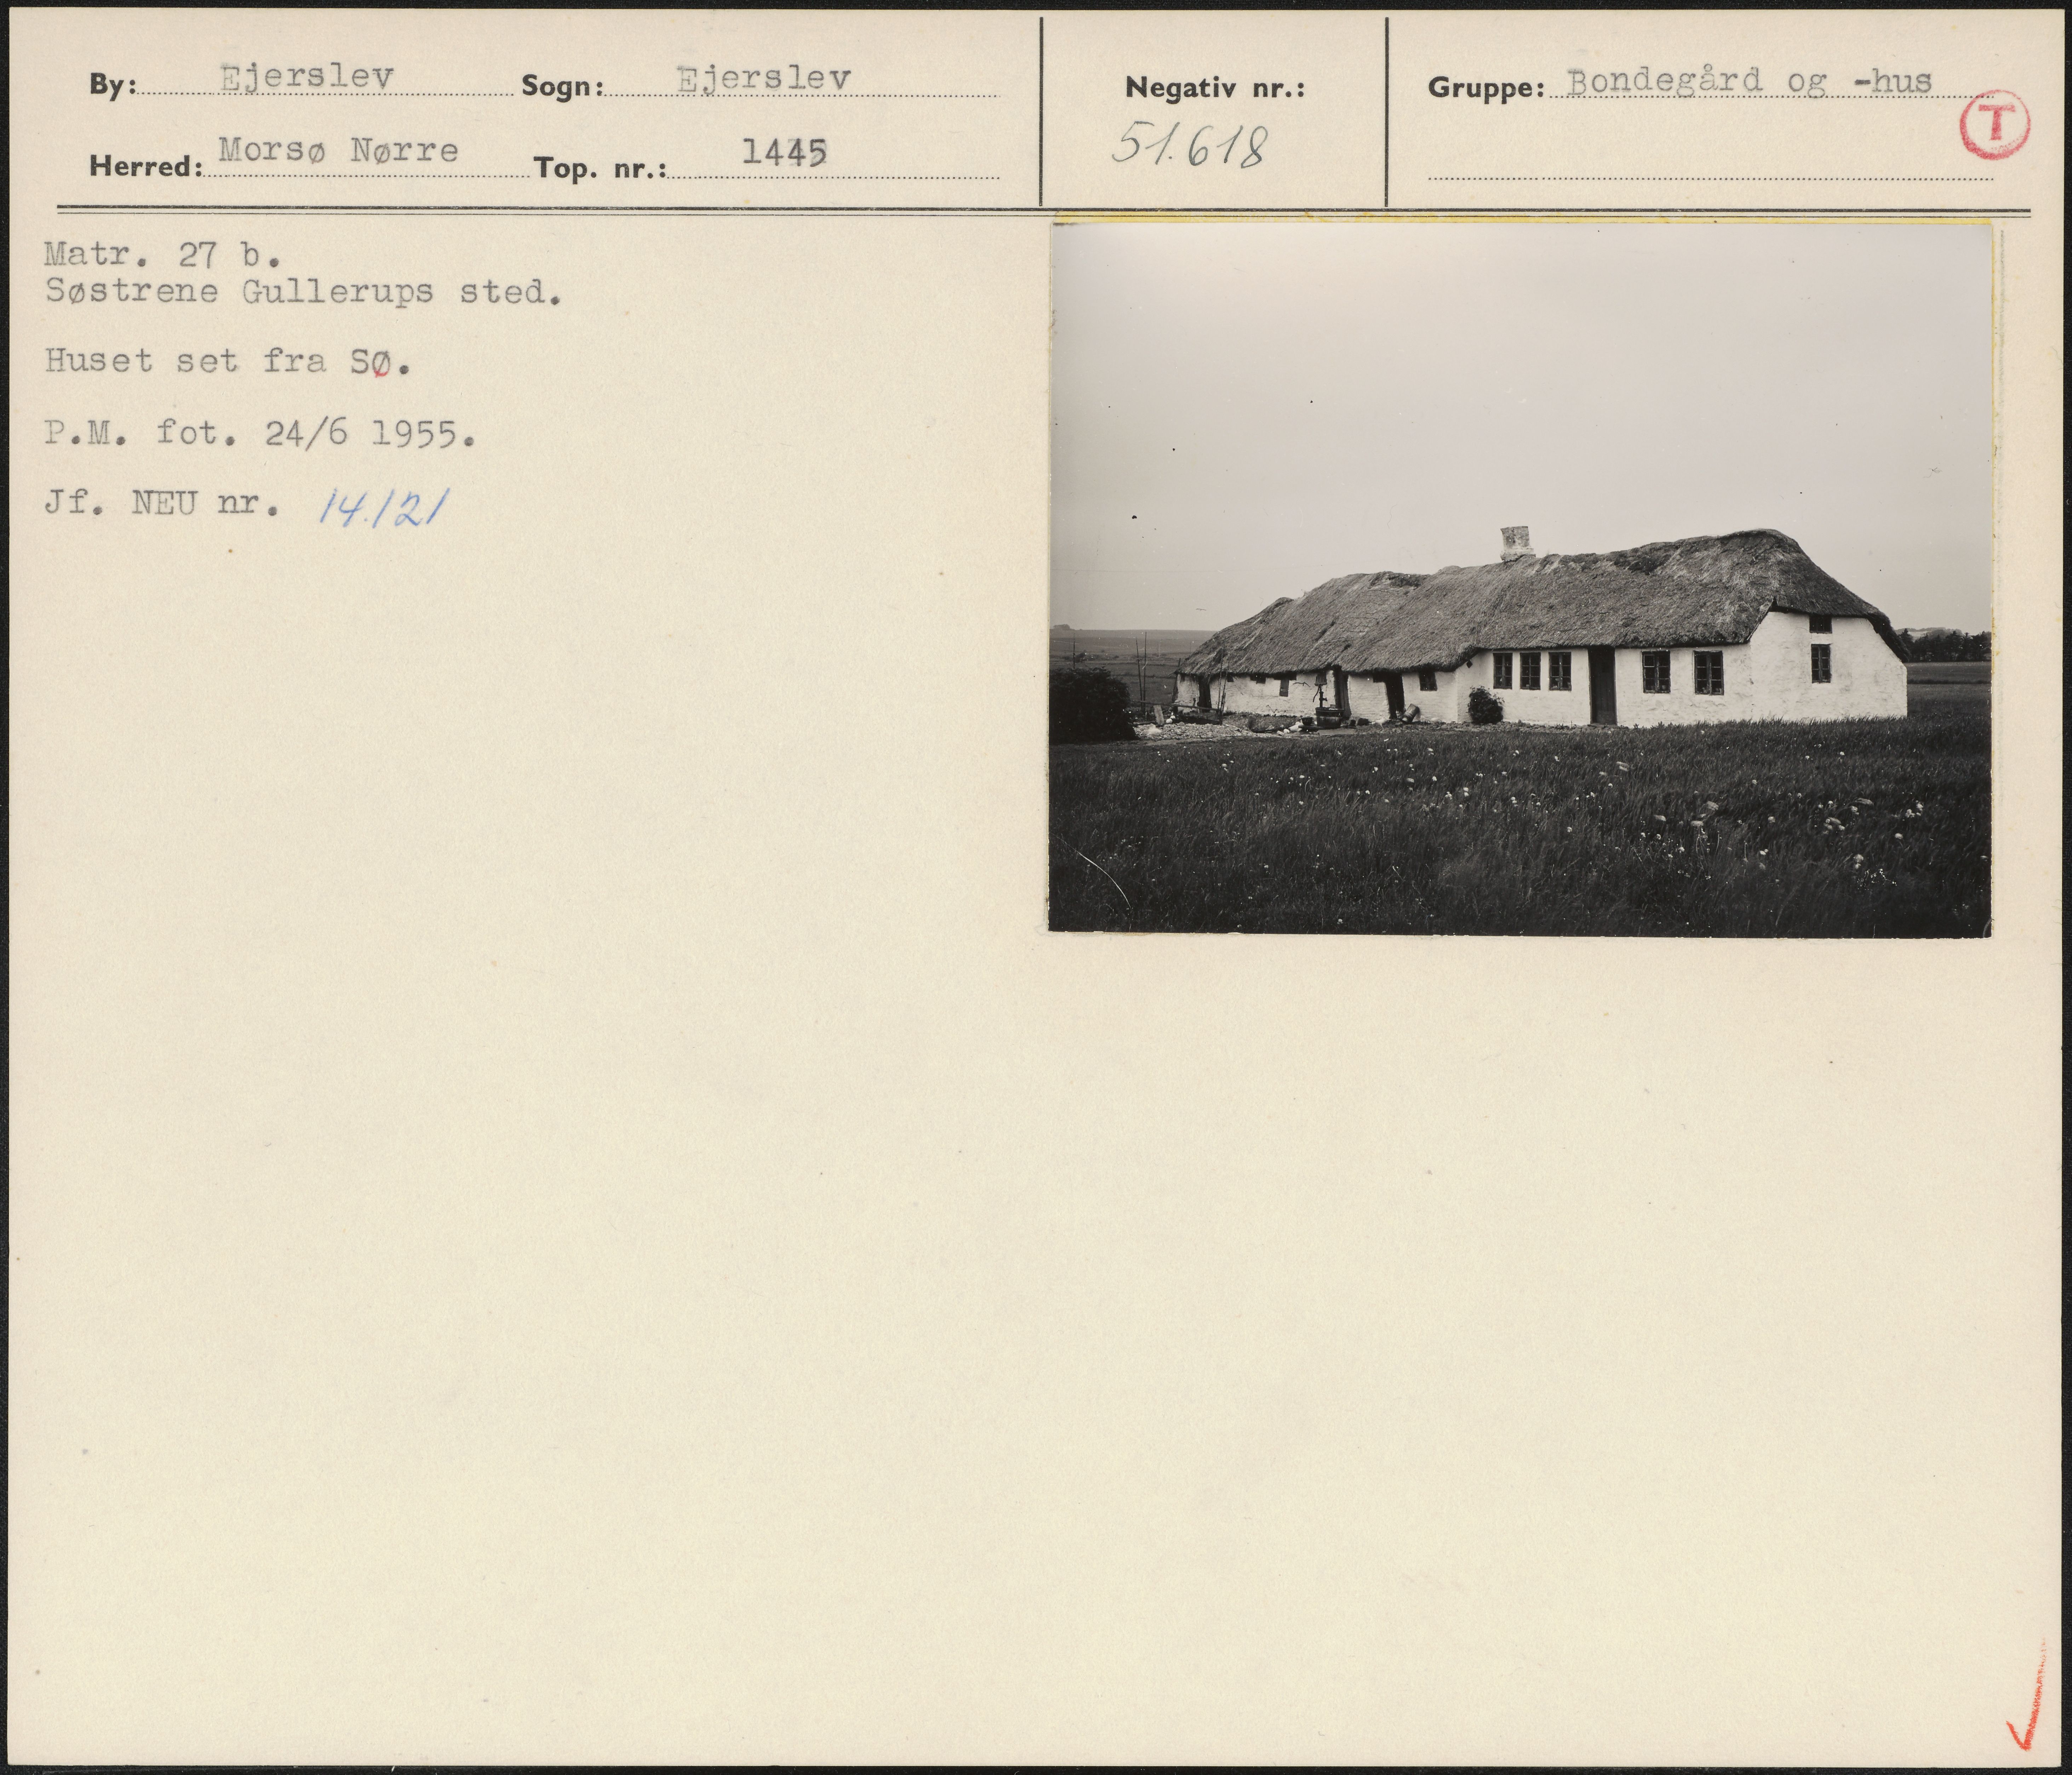 By: Ejerslev Sogn: Ejerslev
Herred: Morsø Nørre Top. nr.: 1445
Negativ nr.:
51.618
Gruppe: Bondegård og -hus
T
Matr. 27 b.
Søstrene Gullerups sted.
Huset set fra SØ.
P.M. fot. 24/6 1955.
Jf. NEU nr. 14.121